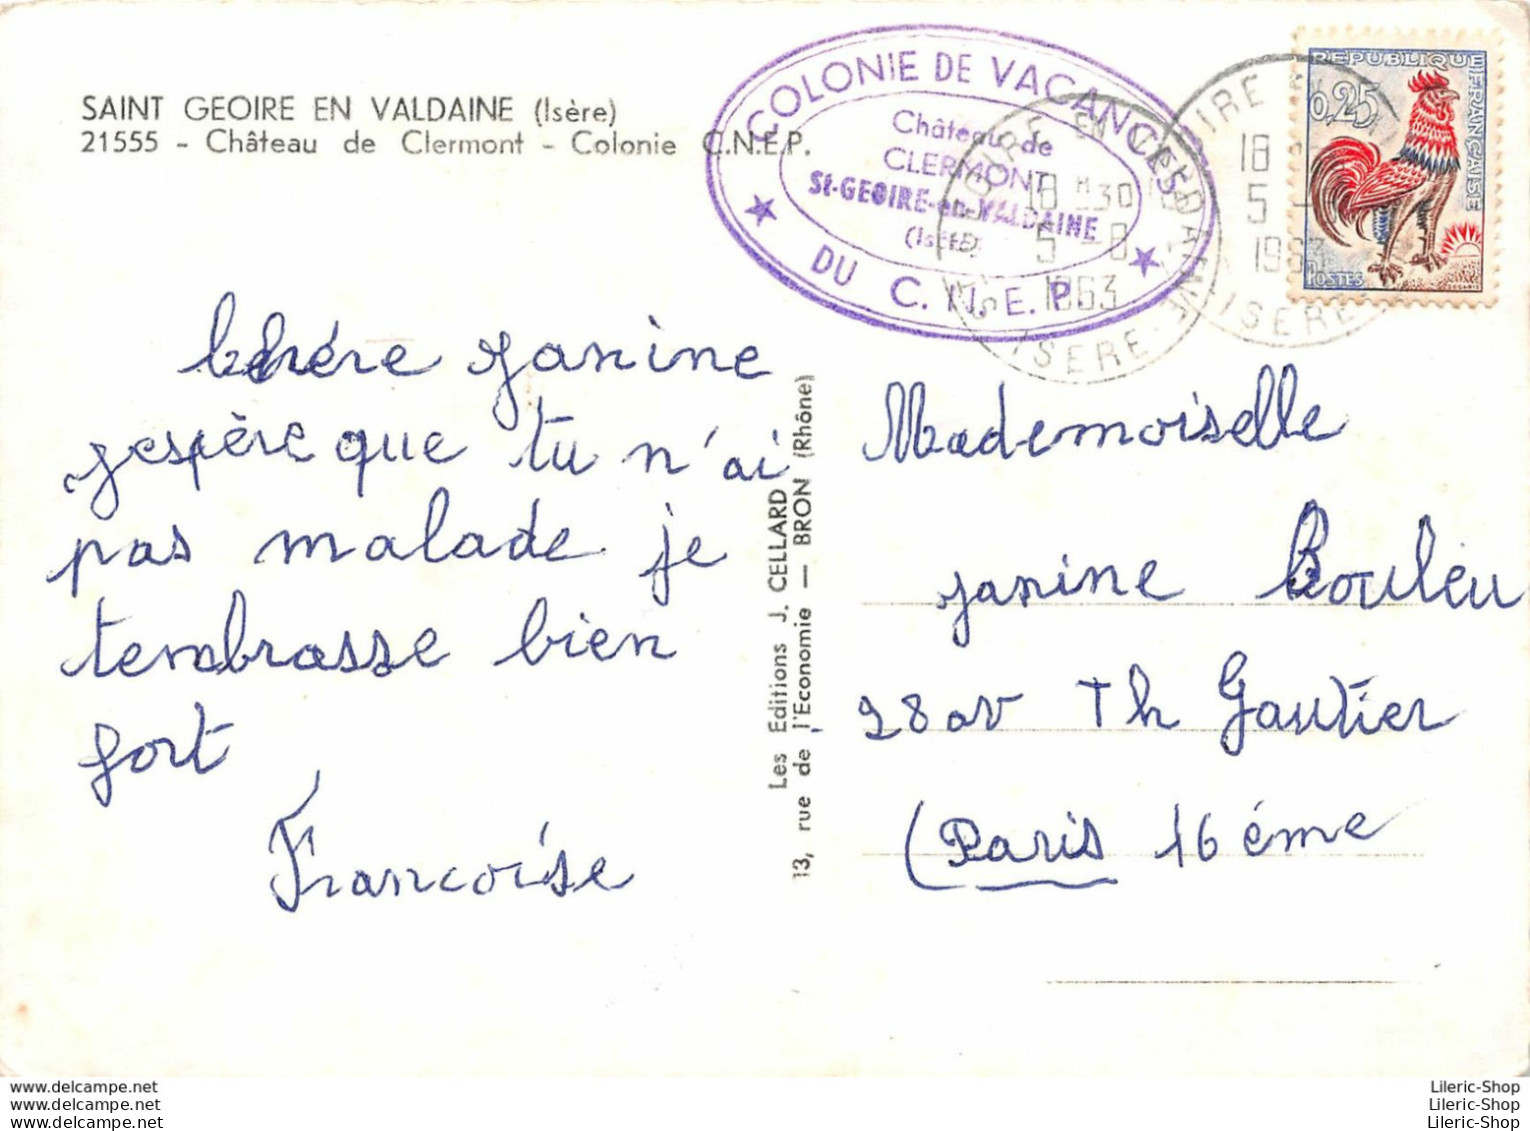 SAINT GEOIRE EN VALDAINE (Isère)
21555 - Château de Clermont - Colonie C.N.E.P.
COLONIE DE VACANCES
Château de
CLERMONT
St-GEOIRE-en-VALDAINE
(Isère)
DU C.N.E.P.
GEOIRE EN VALDAINE
18 H 30
5 - 8
1963
ISERE
OIRE EN
18
5 -
1963
ISERE
REPUBLIQUE FRANÇAISE
0,25
POSTES
DECARIS
chére janine
jespère que tu n'ai
pas malade. je
tembrasse bien
fort
Francoise
Les Editions J. CELLARD
13, rue de l'Economie — BRON (Rhône)
Mademoiselle
janine Bouleu
28 av Th Gautier
(Paris 16 éme
www.delcampe.net
www.delcampe.com
www.delcampe.net
Lileric-Shop
Lileric-Shop
Lileric-Shop